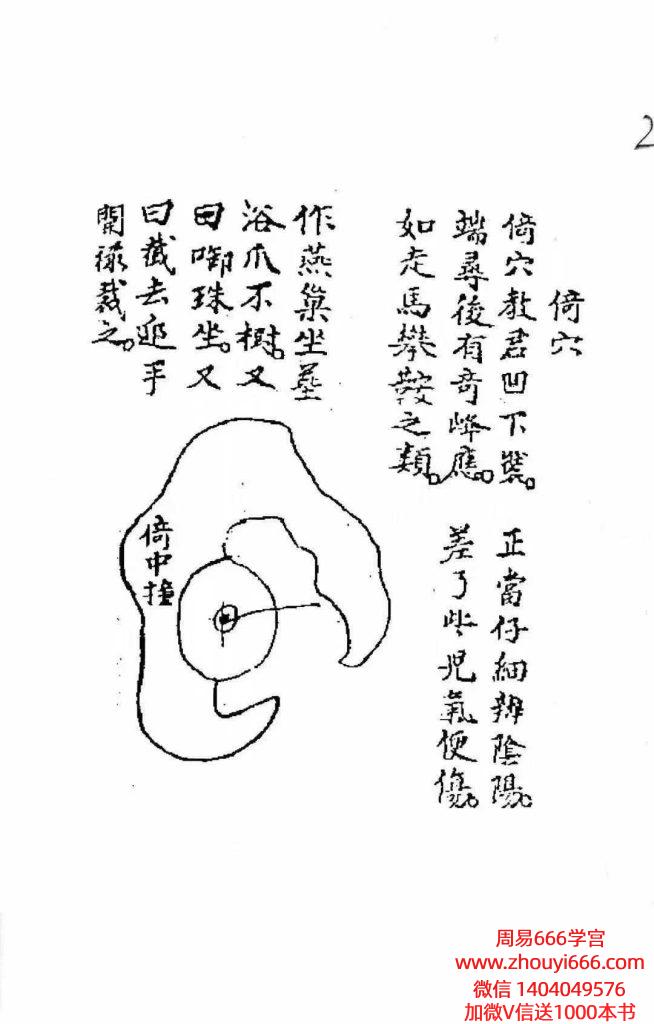 2
倚穴
倚穴教君凹下裝。正當仔細辨陰陽。
端尋後有奇峰應。差了些兒氣便傷。
如走馬攀鞍之類。
作燕巢坐
浴爪不樹。又
曰啣珠坐。又
曰截去 手
裁之。
倚中撞
周易666学宫
www.zhouyi666.com
微信 1404049576
加微V信送1000本书